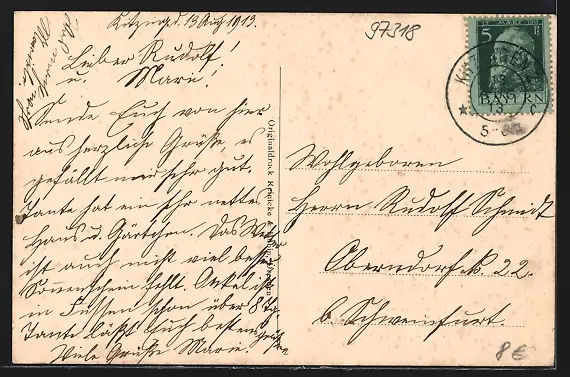 Kitzingen d. 13. Aug. 1913.
97318
Lieber Rudolf!
u. Marie!
Sende Euch von hier
aus herzliche Grüße, es
gefällt mir sehr gut.
Tante hat ein sehr nettes
Haus u. Gärtchen. Das Wetter
ist auch nicht viel besser
Sonnenschein fehlt. Onkel ist
in Füssen schon über 8 Tg.
Tante läßt Euch bestens grüßen
Viele Grüße Marie.
Originaldruck Reinicke &
5
BAYERN
KITZINGEN
13
5-
Wohlgeboren
Herrn Rudolf Schmidt
Oberndorf k. 22.
b. Schweinfurt.
8€